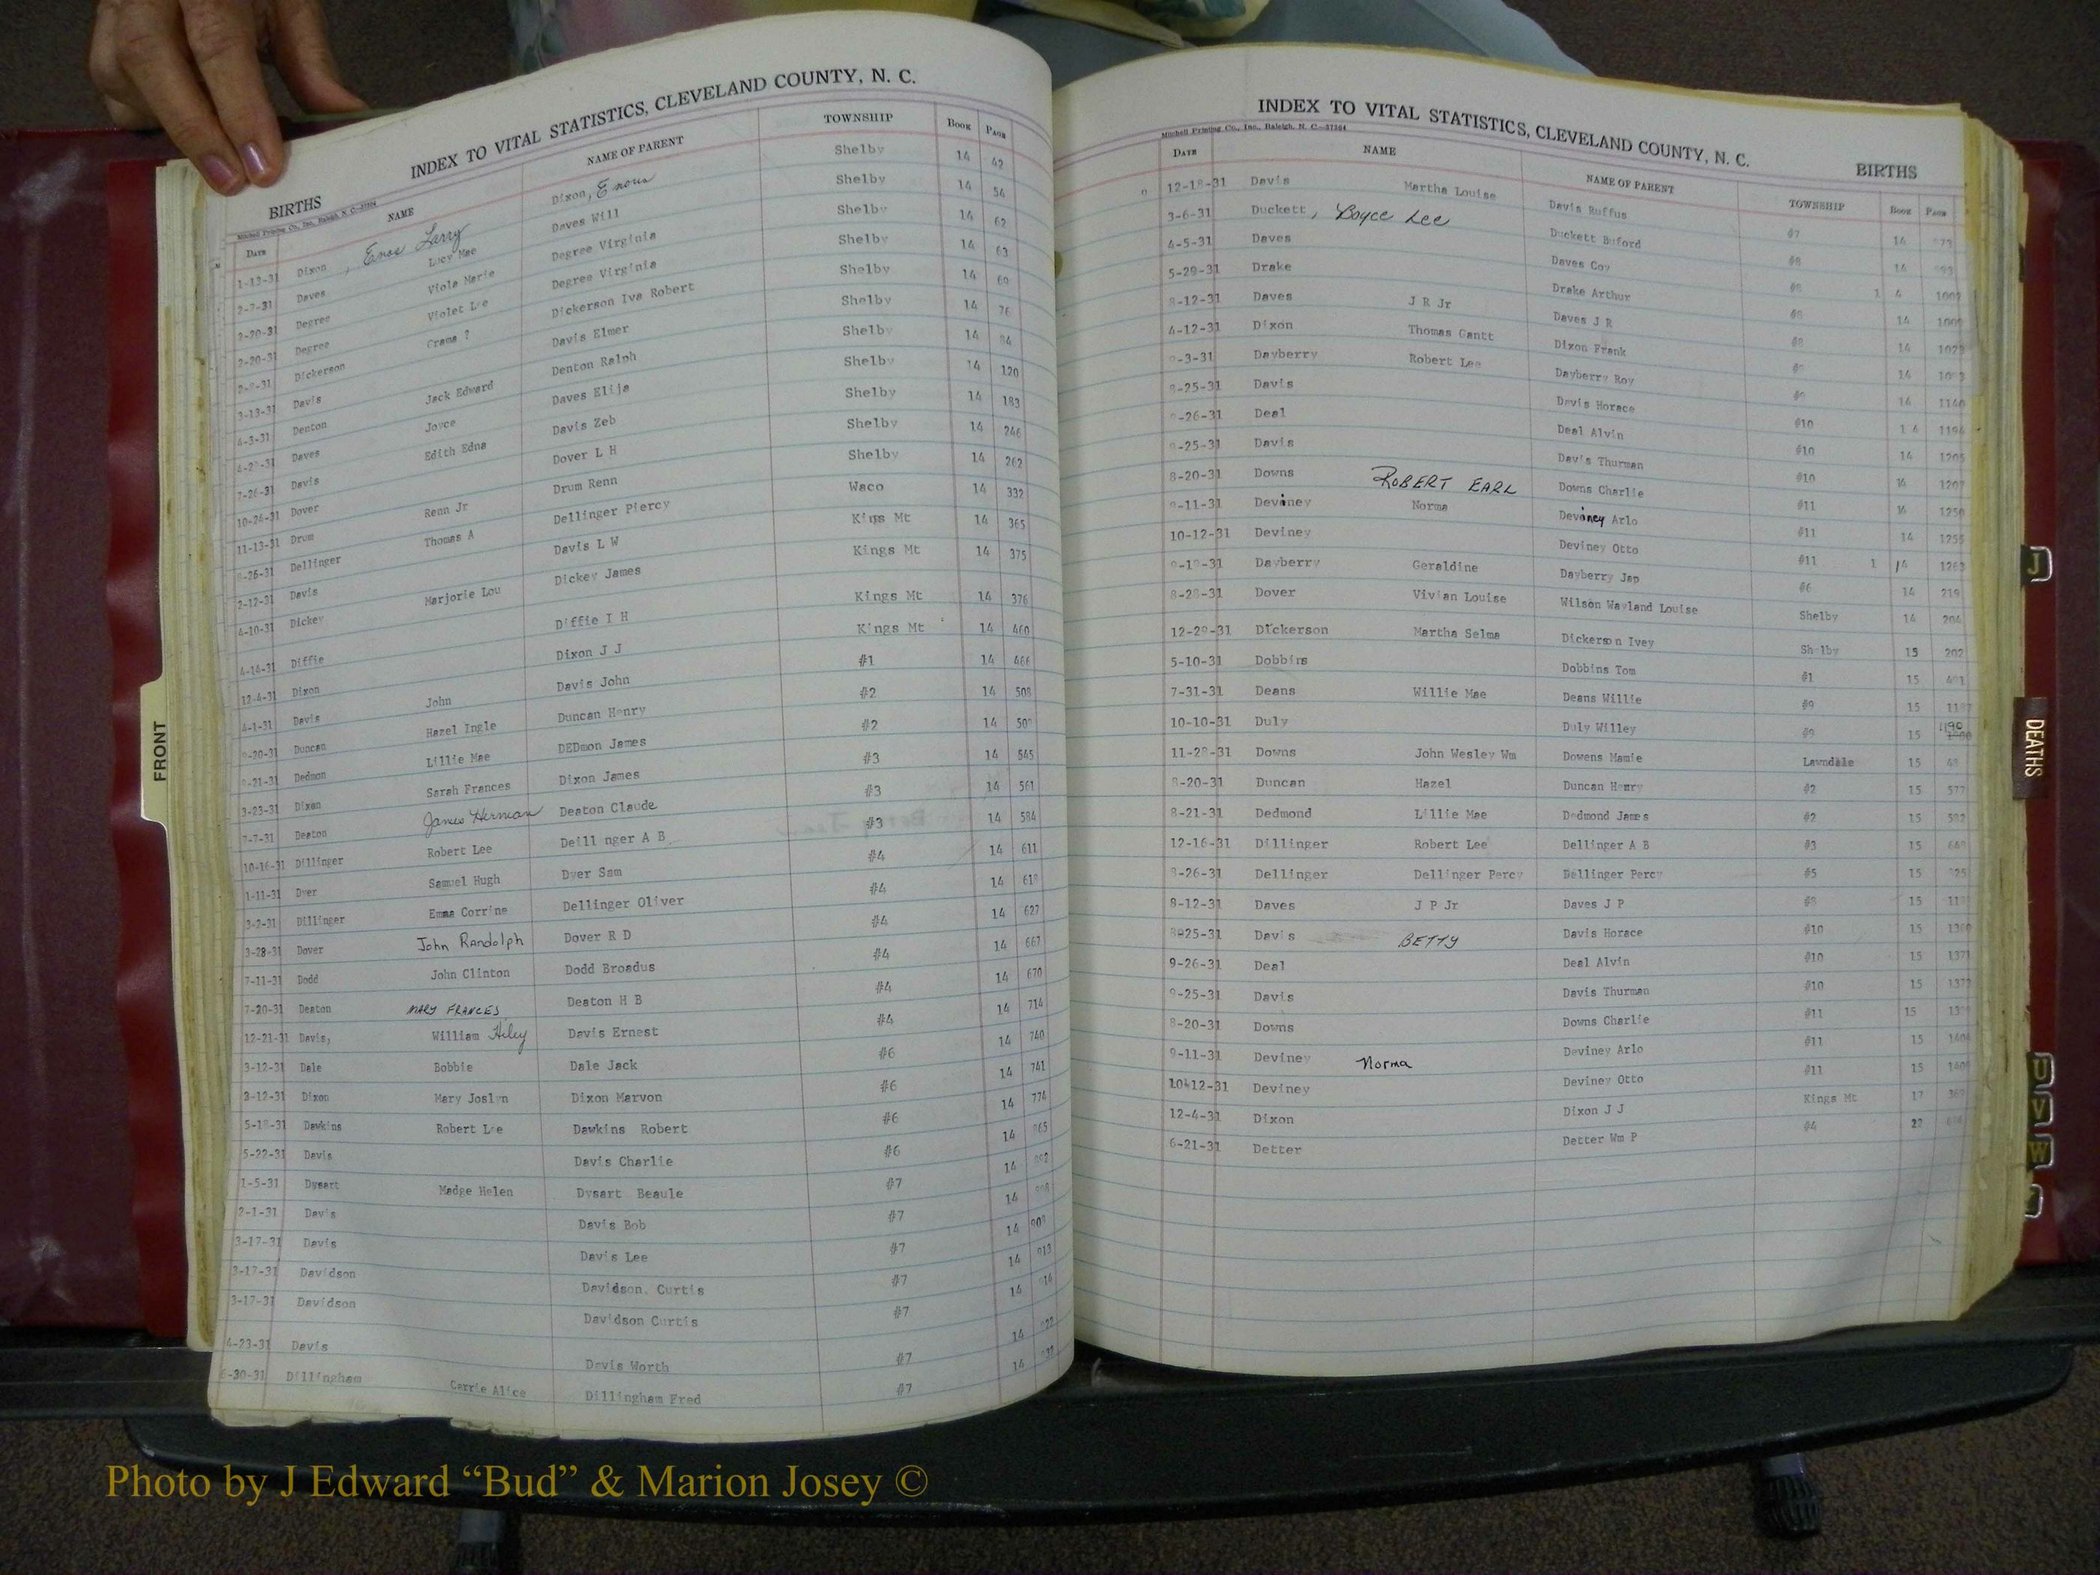 INDEX TO VITAL STATISTICS, CLEVELAND COUNTY, N. C.
BIRTHS
Mitchell Printing Co., Inc., Raleigh, N. C.
DATE NAME NAME OF PARENT TOWNSHIP BOOK PAGE
1-13-31 Dixon, Enos Larry Dixon, Enous Shelby 14 42
Daves Lucy Mae Daves Will Shelby 14 54
2-20-31 Degree Viola Marie Degree Virginia Shelby 14 62
2-20-31 Degree Violet Lee Degree Virginia Shelby 14 63
Dickerson Crama ? Dickerson Iva Robert Shelby 14 69
3-13-31 Davis Jack Edward Davis Elmer Shelby 14 76
4-3-31 Denton Joyce Denton Ralph Shelby 14 84
Daves Edith Edna Daves Elija Shelby 14 120
7-26-31 Davis Davis Zeb Shelby 14 183
10-24-31 Dover Dover L H Shelby 14 246
11-13-31 Drum Renn Jr Drum Renn Shelby 14 262
Dellinger Thomas A Dellinger Piercy Waco 14 332
2-12-31 Davis Davis L W Kings Mt 14 365
4-10-31 Dickey Marjorie Lou Dickey James Kings Mt 14 375
4-14-31 Diffie Diffie I H Kings Mt 14 376
12-4-31 Dixon Dixon J J Kings Mt 14 460
4-1-31 Davis John Davis John #1 14 466
Duncan Hazel Ingle Duncan Henry #2 14 508
Dedmon Lillie Mae DEDmon James #2 14
3-23-31 Dixon Sarah Frances Dixon James #3 14 545
7-7-31 Deaton James Herman Deaton Claude #3 14 561
10-16-31 Dillinger Robert Lee Deill nger A B #3 14 584
1-11-31 Dyer Samuel Hugh Dyer Sam #4 14 611
3-2-31 Dillinger Emma Corrine Dellinger Oliver #4 14 618
3-28-31 Dover John Randolph Dover R D #4 14 627
7-11-31 Dodd John Clinton Dodd Broadus #4 14 667
7-20-31 Deaton MARY FRANCES Deaton H B #4 14 670
12-21-31 Davis, William Hiley Davis Ernest #4 14 714
3-12-31 Dale Bobbie Dale Jack #6 14 740
3-12-31 Dixon Mary Joslyn Dixon Marvon #6 14 741
5-18-31 Dawkins Robert Lee Dawkins Robert #6 14 774
5-22-31 Davis Davis Charlie #6 14
1-5-31 Dysart Madge Helen Dysart Beaule #7 14
2-1-31 Davis Davis Bob #7 14
3-17-31 Davis Davis Lee #7 14
3-17-31 Davidson Davidson. Curtis #7 14
3-17-31 Davidson Davidson Curtis #7 14
4-23-31 Davis Davis Worth #7 14
6-30-31 Dillingham Carrie Alice Dillingham Fred #7 14
FRONT
INDEX TO VITAL STATISTICS, CLEVELAND COUNTY, N. C.
BIRTHS
Mitchell Printing Co., Inc., Raleigh, N. C.
DATE NAME NAME OF PARENT TOWNSHIP BOOK PAGE
12-18-31 Davis Martha Louise Davis Ruffus #7 14
3-6-31 Duckett, Boyce Lee Duckett Buford #8 14
4-5-31 Daves Daves Coy #8 1 4
5-29-31 Drake Drake Arthur #8 14
8-12-31 Daves J R Jr Daves J R #8 14
4-12-31 Dixon Thomas Gantt Dixon Frank 14
Dayberry Robert Lee Dayberry Roy 14
Davis Davis Horace #10 1 4
9-26-31 Deal Deal Alvin #10 14
9-25-31 Davis Davis Thurman #10
8-20-31 Downs ROBERT EARL Downs Charlie #11
9-11-31 Deviney Norma Deviney Arlo #11 14
10-12-31 Deviney Deviney Otto #11 1 14
Dayberry Geraldine Dayberry Jap #6 14 219
8-28-31 Dover Vivian Louise Wilson Wayland Louise Shelby 14 204
12-29-31 Dickerson Martha Selma Dickerson Ivey Shelby 15 202
5-10-31 Dobbins Dobbins Tom #1 15
7-31-31 Deans Willie Mae Deans Willie #9 15
10-10-31 Duly Duly Willey #9 15 1190
11-28-31 Downs John Wesley Wm Dowens Mamie Lawndale 15 48
8-20-31 Duncan Hazel Duncan Henry #2 15 577
8-21-31 Dedmond Lillie Mae Dedmond James #2 15 582
12-16-31 Dillinger Robert Lee Dellinger A B #3 15
8-26-31 Dellinger Dellinger Percy Dellinger Percy #5 15
8-12-31 Daves J P Jr Daves J P #8 15
Davis BETTY Davis Horace #10 15
9-26-31 Deal Deal Alvin #10 15 1371
9-25-31 Davis Davis Thurman #10 15
8-20-31 Downs Downs Charlie #11 15
9-11-31 Deviney Norma Deviney Arlo #11 15
10-12-31 Deviney Deviney Otto #11 15
12-4-31 Dixon Dixon J J Kings Mt 17
6-21-31 Detter Detter Wm P #4 22
J
DEATHS
U
V
W
Photo by J Edward “Bud” & Marion Josey ©